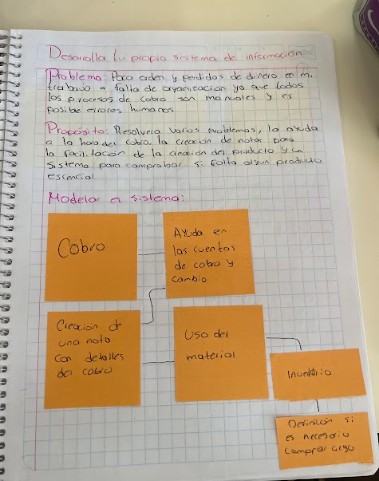 Desarrolla tu propio sistema de información
Problema: Poco orden y perdidas de dinero en mi
trabajo = falta de organizacion ya que todos
los procesos de cobro son manuales y es
posible errores humanos
Proposito: Resolveria varios problemas, la ayuda
a la hora del cobro, la creacion de notas para
la facilitacion de la creacion del producto y un
sistema para comprobar si falta algun producto
escencial
Modelar el sistema:
Cobro
Ayuda en
las cuentas
de cobro y
cambio
Creacion de
una nota
con detalles
del cobro
Uso del
material
Inventario
Definicion si
es necesario
comprar algo